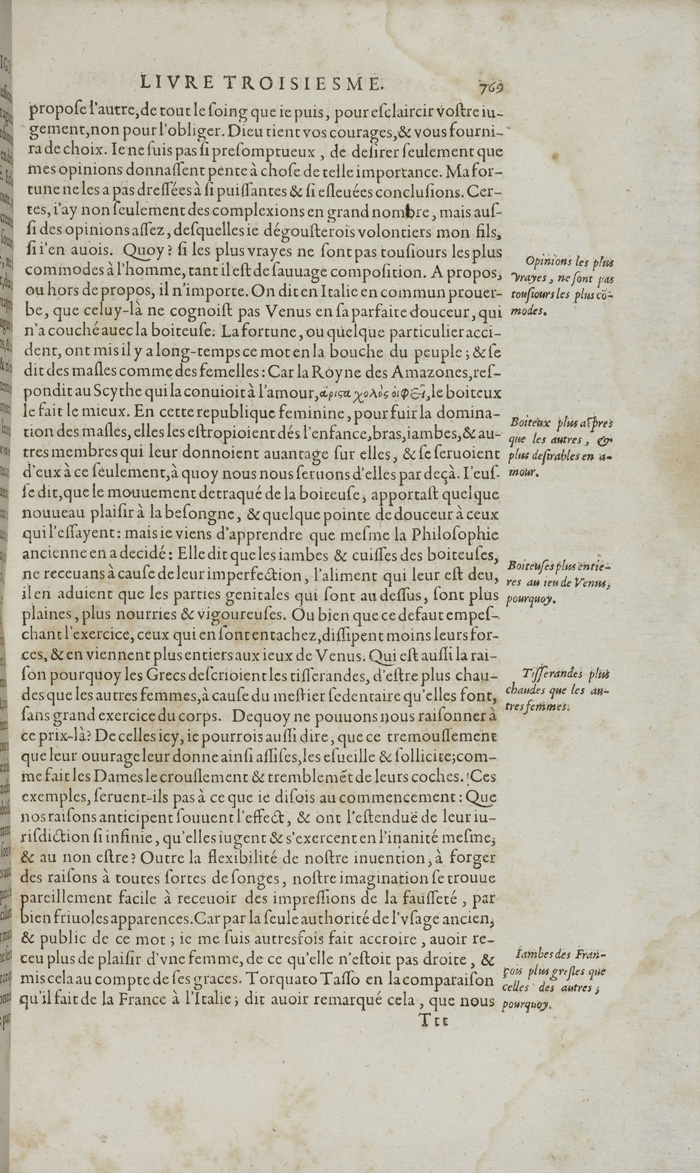 LIVRE TROISIESME. 769
propoſe l'autre, de tout le ſoing que ie puis, pour eſclaircir voſtre iu-
gement, non pour l'obliger. Dieu tient vos courages, & vous fourni-
ra de choix. Ie ne ſuis pas ſi preſomptueux, de deſirer ſeulement que
mes opinions donnaſſent pente à choſe de telle importance. Ma for-
tune ne les a pas dreſſées à ſi puiſſantes & ſi eſleuées concluſions. Cer-
tes, i'ay non ſeulement des complexions en grand nombre, mais auſ-
ſi des opinions aſſez, deſquelles ie dégouſterois volontiers mon fils,
ſi i'en auois. Quoy? ſi les plus vrayes ne ſont pas touſiours les plus
commodes à l'homme, tant il eſt de ſauuage compoſition. A propos,
ou hors de propos, il n'importe. On dit en Italie en commun prouer-
be, que celuy-là ne cognoiſt pas Venus en ſa parfaite douceur, qui
n'a couché auec la boiteuſe. La fortune, ou quelque particulier acci-
dent, ont mis il y a long-temps ce mot en la bouche du peuple; & ſe
dit des maſles comme des femelles: Car la Royne des Amazones, reſ-
pondit au Scythe qui la conuioit à l'amour, ἄριστα χολὸς οἰφεῖ, le boiteux
le fait le mieux. En cette republique feminine, pour fuir la domina-
tion des maſles, elles les eſtropioient dés l'enfance, bras, iambes, & au-
tres membres qui leur donnoient auantage ſur elles, & ſe ſeruoient
d'eux à ce ſeulement, à quoy nous nous ſeruons d'elles par deçà. I'euſ-
ſe dit, que le mouuement detraqué de la boiteuſe, apportaſt quelque
nouueau plaiſir à la beſongne, & quelque pointe de douceur à ceux
qui l'eſſayent: mais ie viens d'apprendre que meſme la Philoſophie
ancienne en a decidé: Elle dit que les iambes & cuiſſes des boiteuſes,
ne receuans à cauſe de leur imperfection, l'aliment qui leur eſt deu,
il en aduient que les parties genitales qui ſont au deſſus, ſont plus
plaines, plus nourries & vigoureuſes. Ou bien que ce defaut empeſ-
chant l'exercice, ceux qui en ſont entachez, diſſipent moins leurs for-
ces, & en viennent plus entiers aux ieux de Venus. Qui eſt auſſi la rai-
ſon pourquoy les Grecs deſcrioient les tiſſerandes, d'eſtre plus chau-
des que les autres femmes, à cauſe du meſtier ſedentaire qu'elles font,
ſans grand exercice du corps. Dequoy ne pouuons nous raiſonner à
ce prix-là? De celles icy, ie pourrois auſſi dire, que ce tremouſſement
que leur ouurage leur donne ainſi aſſiſes, les eſueille & ſollicite; com-
me fait les Dames le crouſlement & tremblemét de leurs coches. Ces
exemples, ſeruent-ils pas à ce que ie diſois au commencement: Que
nos raiſons anticipent ſouuent l'effect, & ont l'eſtenduë de leur iu-
riſdiction ſi infinie, qu'elles iugent & s'exercent en l'inanité meſme,
& au non eſtre? Outre la flexibilité de noſtre inuention, à forger
des raiſons à toutes ſortes de ſonges, noſtre imagination ſe trouue
pareillement facile à receuoir des impreſſions de la fauſſeté, par
bien friuoles apparences. Car par la ſeule authorité de l'vſage ancien,
& public de ce mot; ie me ſuis autresfois fait accroire, auoir re-
ceu plus de plaiſir d'vne femme, de ce qu'elle n'eſtoit pas droite, &
mis cela au compte de ſes graces. Torquato Taſſo en la comparaiſon
qu'il fait de la France à l'Italie; dit auoir remarqué cela, que nous
Ttt
Opinions les plus
vrayes, ne ſont pas
touſiours les plus cō-
modes.
Boiteux plus aſpres
que les autres, &
plus deſirables en a-
mour.
Boiteuſes plus entie-
res au ieu de Venus,
pourquoy.
Tiſſerandes plus
chaudes que les au-
tres femmes.
Iambes des Fran-
çois plus greſles que
celles des autres,
pourquoy.